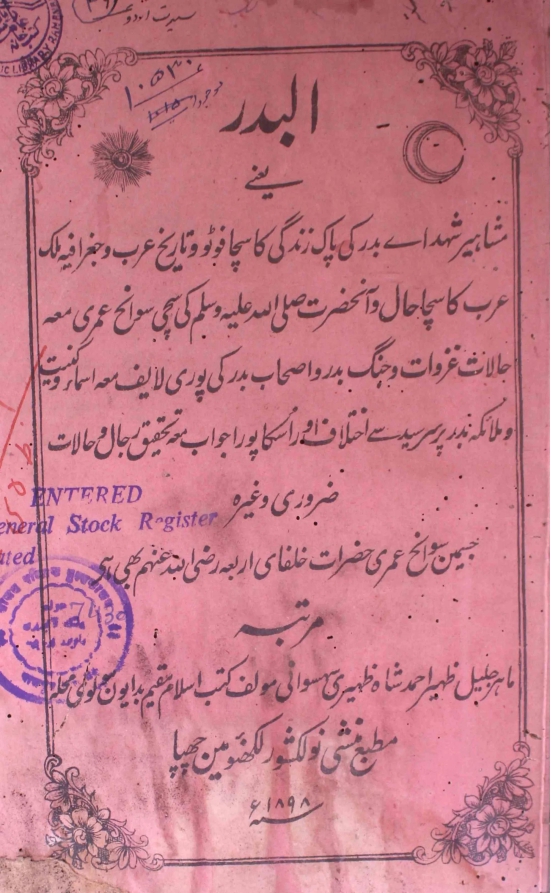 سیرت اردو
۱۰۵۳۰
البدر
یعنے
مشاہیر شہداے بدر کی پاک زندگی کا سچا فوٹو و تاریخ عرب و جغرافیہ ملک
عرب کا سچا حال و آنحضرت صلی اللہ علیہ وسلم کی سچی سوانح عمری معہ
حالات غزوات و جنگ بدر و اصحاب بدر کی پوری لایف معہ اسماء و کنیت
و ملائکہ بدر پر سرسید سے اختلاف اور اُسکا پورا جواب معہ تحقیق رجال و حالات
ضروری وغیرہ
ENTERED
eneral Stock Register
ated
جسمین سوانح عمری حضرات خلفای اربعہ رضی اللہ عنہم بھی ہی
مرتبہ
ماہر جلیل ظہیر احمد شاہ ظہیری سہسوانی مولف کتب اسلام مقیم بدایون مولوی محلہ
مطبع منشی نولکشور لکھنؤ مین چھپا
سنہ ۱۸۹۸ع